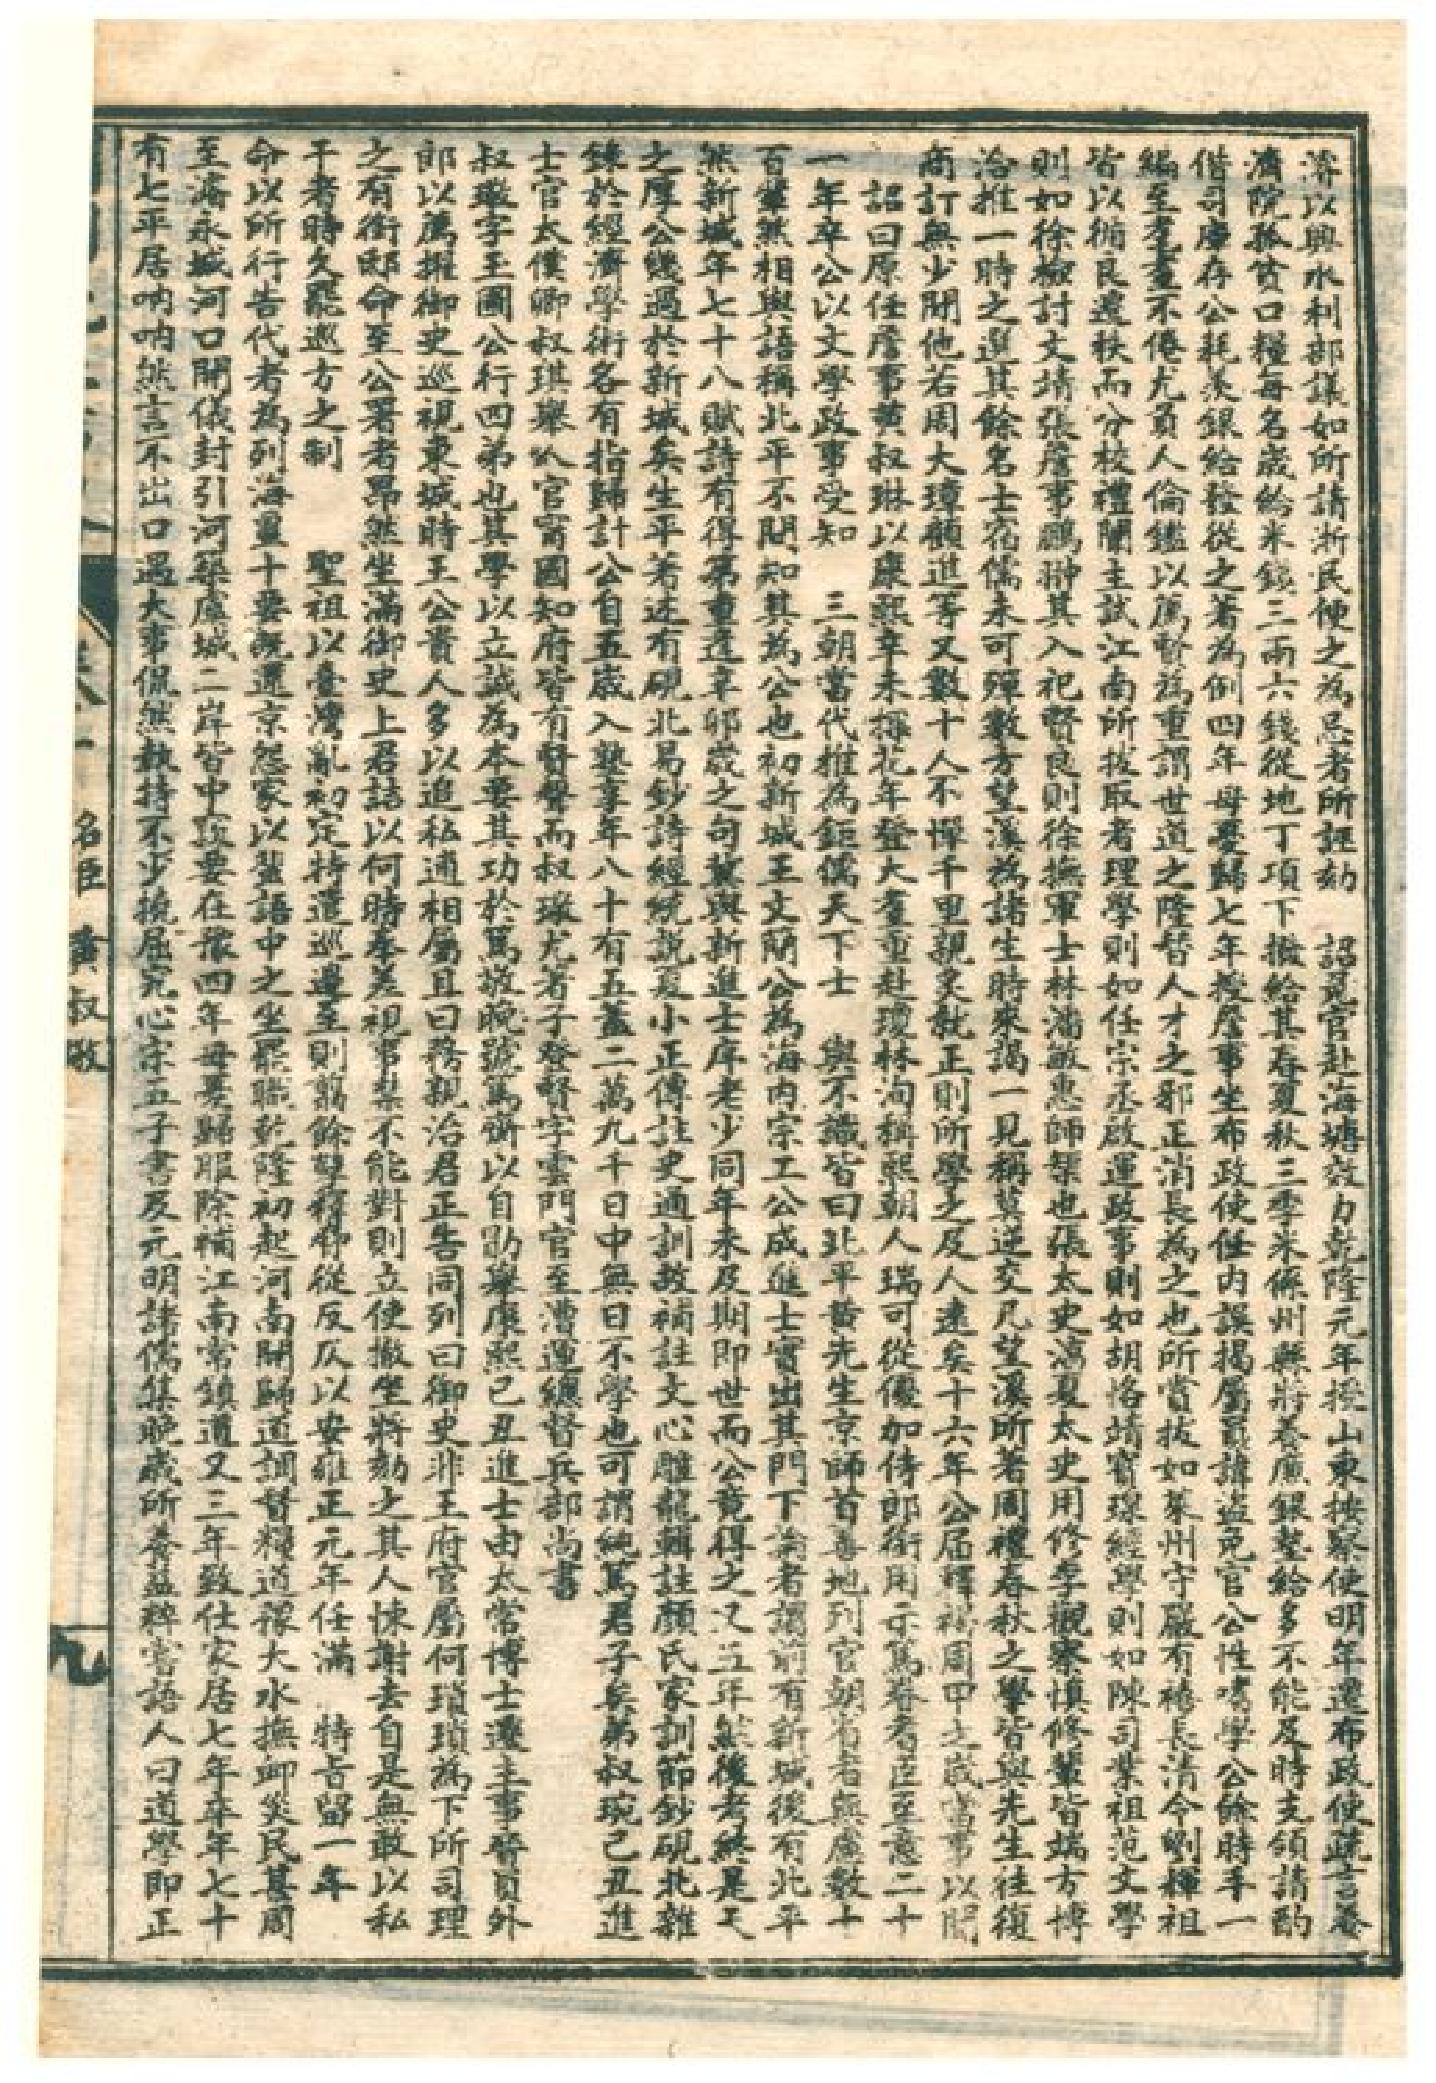 濬以興水利部議如所請浙民便之為忌者所誣劾　詔免官赴海塘效力乾隆元年授山東按察使明年遷布政使疏言養
濟院孤貧口糧每名歲給米錢三兩六錢從地丁項下撥給其春夏秋三季米係州縣將養廉銀墊給多不能及時支領請酌
借司庫存公耗羨銀給發從之著為例四年母憂歸七年授詹事坐布政使任內誤揭屬員諱盜免官公性嗜學公餘時手一
編至老耄不倦尤負人倫鑑以薦賢為重謂世道之隆替人才之邪正消長為之也所賞拔如萊州守嚴有禧長清令劉輝祖
皆以循良遷秩而分校禮闈主試江南所拔取者理學則如任宗丞啟運政事則如胡恪靖寶瑔經學則如陳司業祖范文學
則如徐檢討文靖張詹事鵬翀其入祀賢良則徐撫軍士林潘敏惠師榘也張太史漓夏太史用修李觀察慎修輩皆端方博
洽推一時之選其餘名士宿儒未可殫數方望溪為諸生時來謁一見稱莫逆交凡望溪所著周禮春秋之學皆與先生往復
商訂無少閒他若周大璋顧進等又數十人不憚千里親炙就正則所學之及人遠矣十六年公屆釋褐周甲之歲當事以聞
詔曰原任詹事黃叔琳以康熙辛未探花年登大耋重赴瓊林洵稱熙朝人瑞可從優加侍郎銜用示篤眷耆臣至意二十
一年卒公以文學政事受知　三朝當代推為鉅儒天下士　與不識皆曰北平黃先生京師首善地列官朝省者無慮數十
百輩然相與語稱北平不問知其為公也初新城王文簡公為海內宗工公成進士實出其門下論者謂前有新城後有北平
然新城年七十八賦詩有得為重逢辛卯歲之句冀與新進士序老少同年未及期即世而公竟得之又五年然後考終是天
之厚公幾過於新城矣生平著述有硯北易鈔詩經統說夏小正傳註史通訓故補註文心雕龍輯註顏氏家訓節鈔硯北雜
錄於經濟學術各有指歸計公自五歲入塾享年八十有五蓋二萬九千日中無日不學也可謂純篤君子矣弟叔琬己丑進
士官太僕卿叔琪舉人官甯國知府皆有賢聲而叔璥尤著子登賢字雲門官至漕運總督兵部尚書
叔璥字玉圃公行四弟也其學以立誠為本要其功於篤敬晚號篤齋以自勖舉康熙己丑進士由太常博士遷主事晉員外
郎以薦擢御史巡視東城時王公貴人多以造私通相屬且曰務親治君正告同列曰御史非王府官屬何瑣瑣為下所司理
之有銜郎命至公署者昂然坐滿御史上君詰以何時奉差視事梨不能對則立使撤坐將劾之其人悚謝去自是無敢以私
干者時久罷巡方之制　聖祖以臺灣亂初定特遣巡邊至則翦餘孽釋脅從反仄以安雍正元年任滿　特旨留一年
命以所行告代者為列海疆十要旣還京怨家以蜚語中之坐罷職乾隆初起河南開歸道調督糧道豫大水撫卹災民甚周
至濬永城河口開儀封引河築虞城二岸皆中窾要在豫四年母憂歸服除補江南常鎮道又三年致仕家居七年卒年七十
有七平居吶吶然言不出口遇大事侃然執持不少撓屈究心宋五子書及元明諸儒集晚歲所養益粹嘗語人曰道學即正
名臣　黃叔璥
九